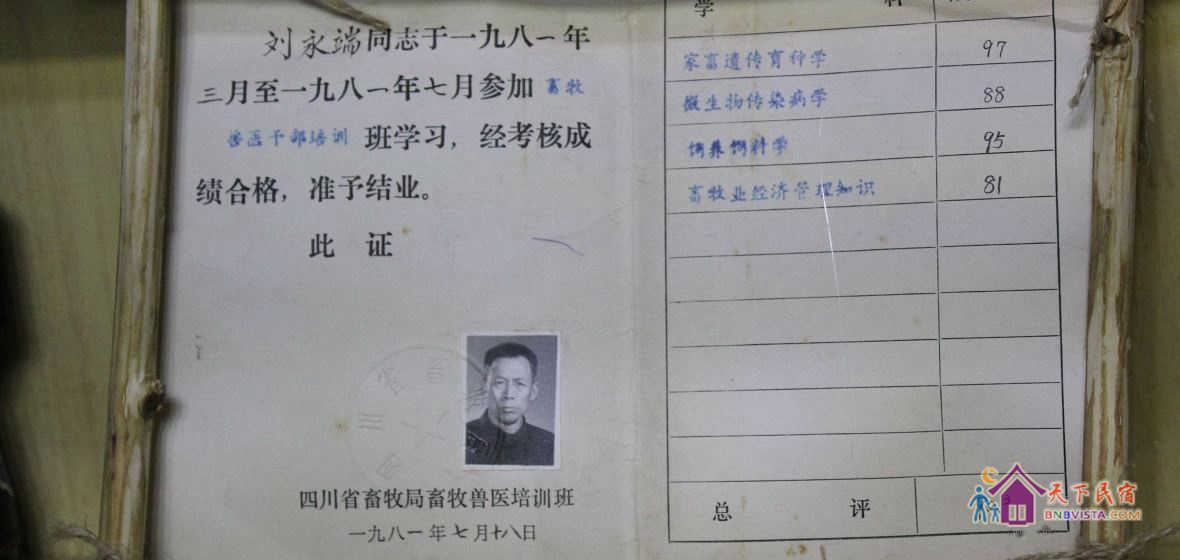 刘永端同志于一九八一年
三月至一九八一年七月参加畜牧
兽医干部培训班学习，经考核成
绩合格，准予结业。
此 证
四川省畜牧局畜牧兽医培训班
一九八一年七月十八日
学 科
家畜遗传育种学 97
微生物传染病学 88
饲养饲料学 95
畜牧业经济管理知识 81
总 评
天下民宿
BNBVISTA.COM